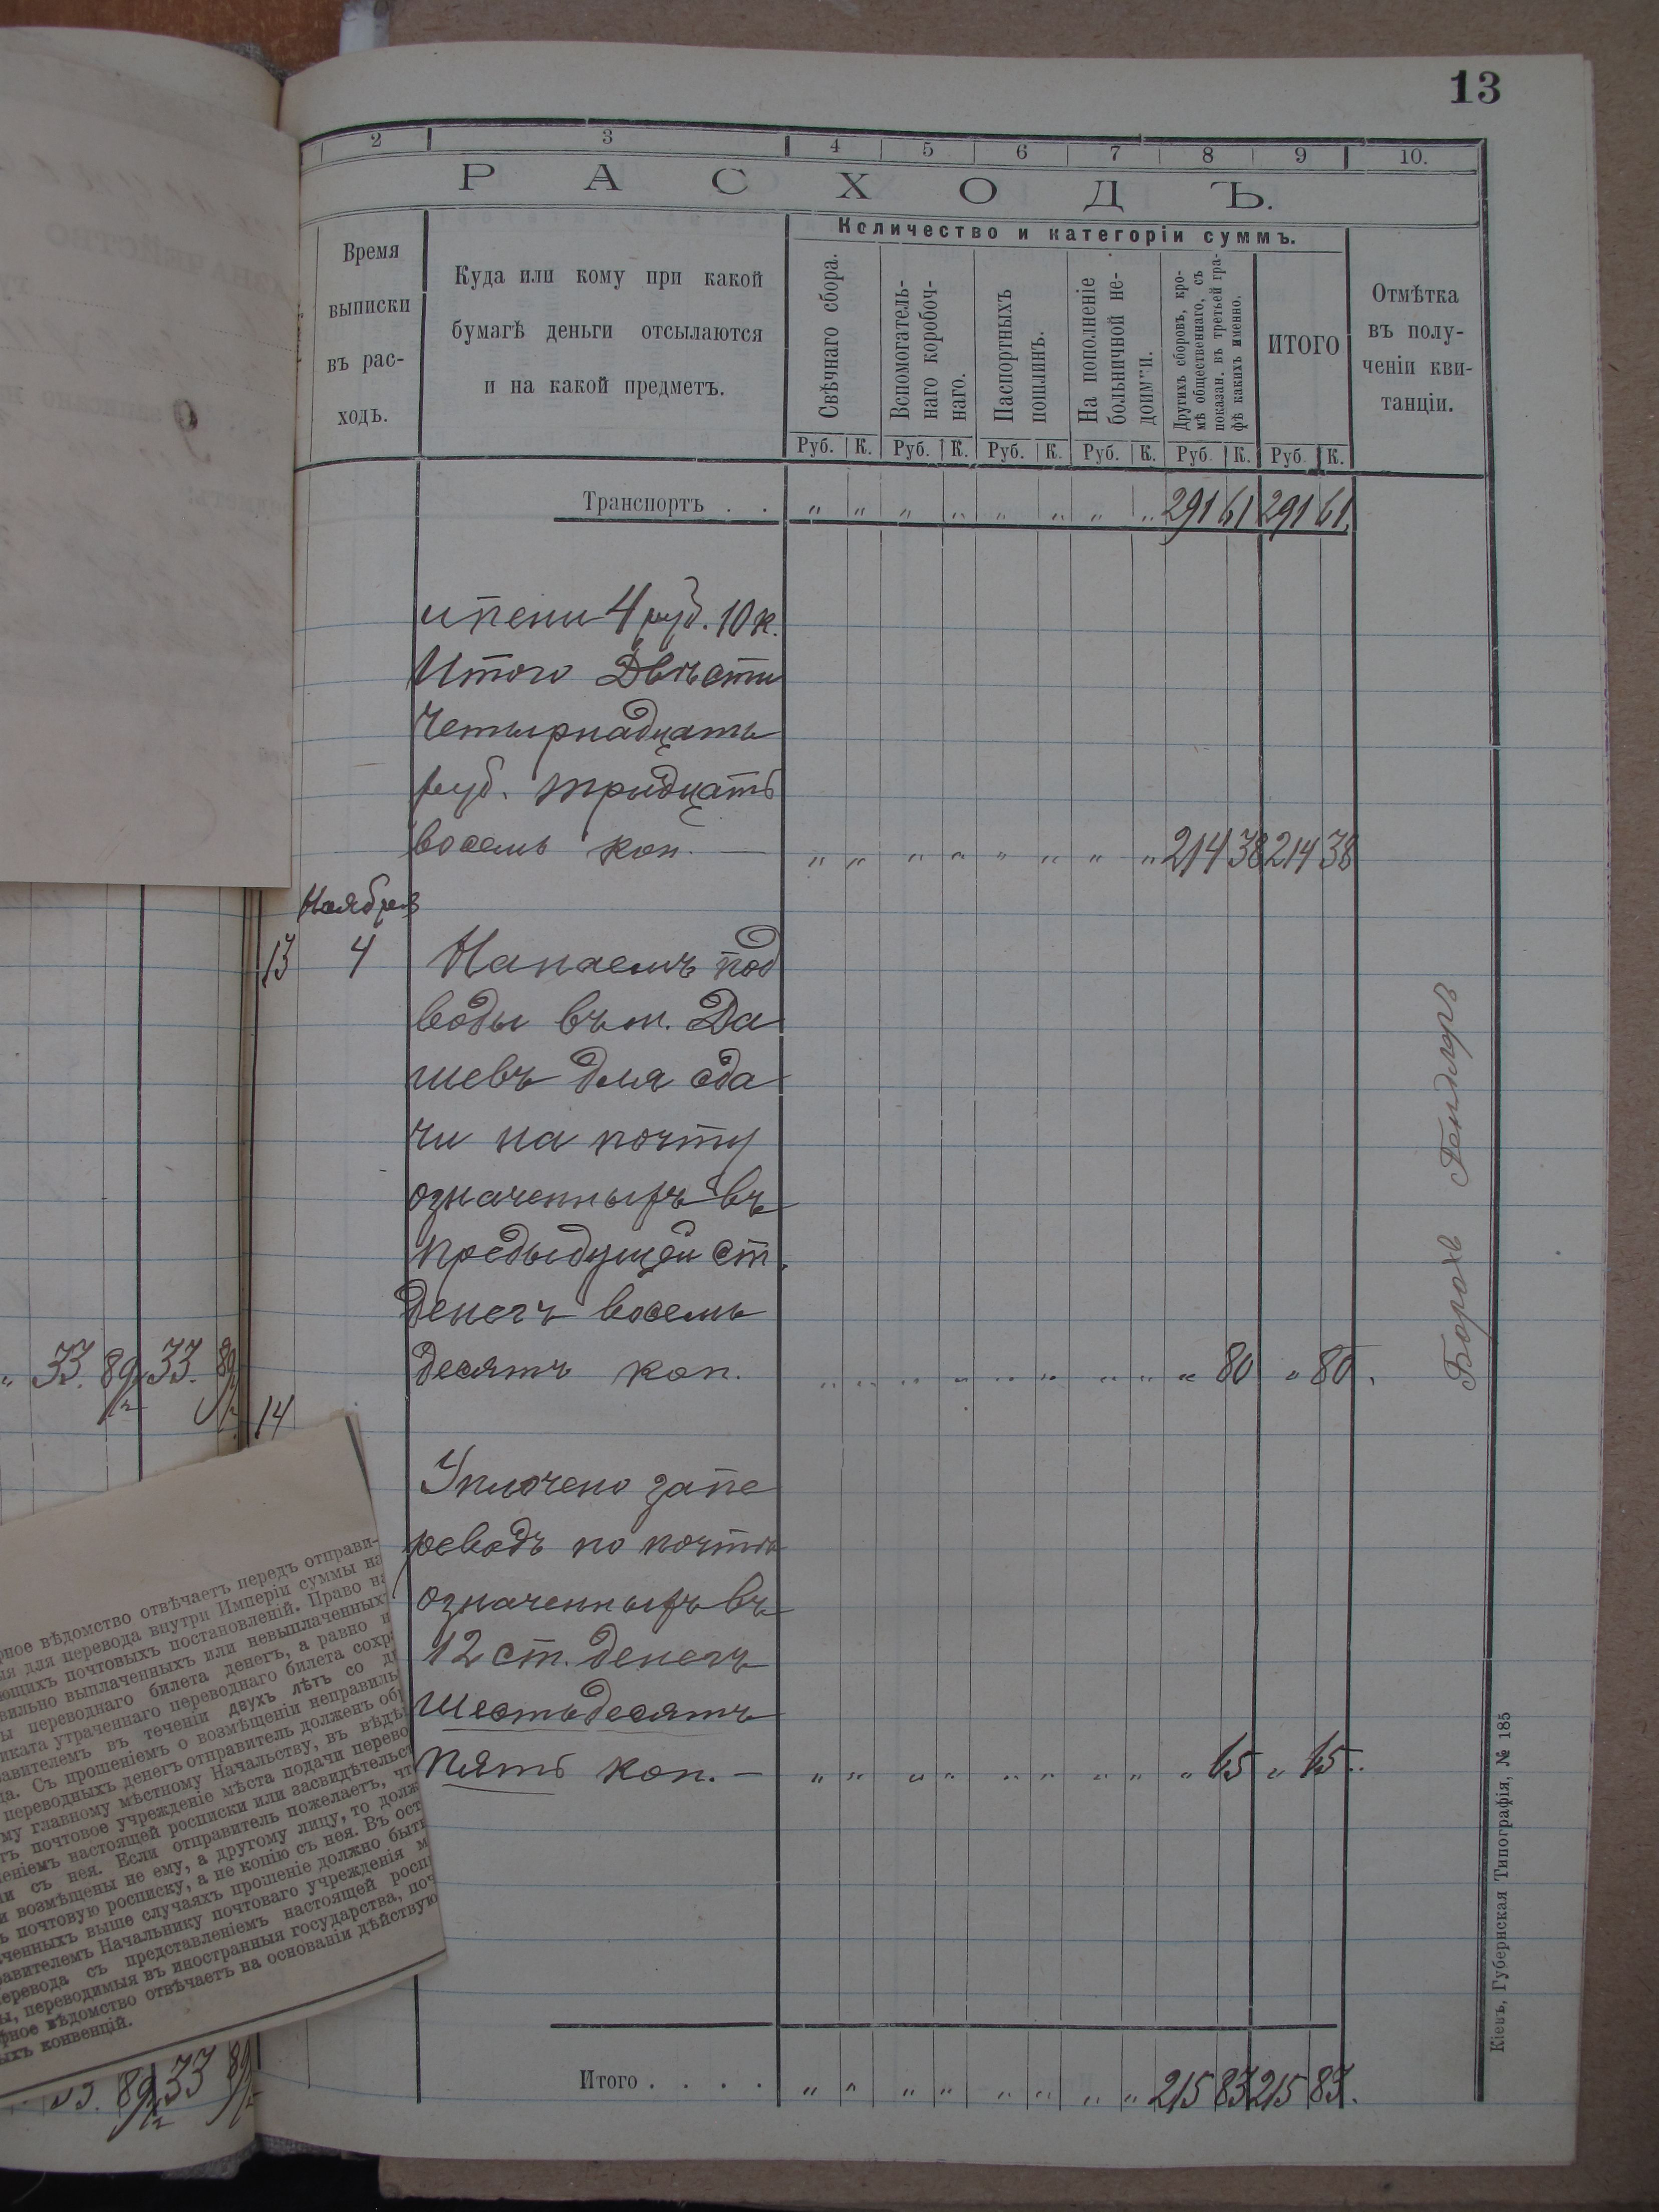 13
2 3 4 5 6 7 8 9 10.
РАСХОДЪ.
Время
выписки
въ рас-
ходъ.
Куда или кому при какой
бумагѣ деньги отсылаются
и на какой предметъ.
Количество и категоріи суммъ.
Свѣчнаго сбора.
Вспомогатель-
наго коробоч-
наго.
Паспортныхъ
пошлинъ.
На пополненіе
больничной не-
доимки.
Другихъ сборовъ, кро-
мѣ общественнаго, съ
показан. въ третьей гра-
фѣ какихъ именно.
ИТОГО
Отмѣтка
въ полу-
ченіи кви-
танціи.
Руб. К. Руб. К. Руб. К. Руб. К. Руб. К. Руб. К.
Транспортъ . . „ „ „ „ „ „ „ „ 291 61 291 61.
и пени 4 руб. 10 к.
Итого Двѣсти
Четырнадцать
руб. тридцать
восемь коп. — „ „ „ „ „ „ „ „ 214 38 214 38
Ноября
13 4 Нанаемъ под
воды въ м. Да
шевъ для сда
чи на почту
означенныхъ въ
предыдущей ст.
денегъ восемь
десятъ коп. „ „ „ „ „ „ „ „ „ 80 „ 80.
Борохъ
14
Уплочено за пе
реводъ по почтѣ
означенныхъ въ
12 ст. денегъ
шестьдесятъ
пять коп. — „ „ „ „ „ „ „ „ „ 65 „ 65..
Итого . . . . „ „ „ „ „ „ „ „ 215 83 215 83.
Кіевъ, Губернская Типографія, № 185
„ 33. 89 1/2 33. 89 1/2
рное вѣдомство отвѣчаетъ передъ отправи-
ыя для перевода внутри Имперіи суммы на
ющихъ почтовыхъ постановленій. Право на
вильно выплаченныхъ или невыплаченныхъ
ы переводнаго билета денегъ, а равно и
иката утраченнаго переводнаго билета сохра
авителемъ въ теченіи двухъ лѣтъ со д
да. Съ прошеніемъ о возмѣщеніи неправиль
переводныхъ денегъ отправитель долженъ обр
му главному мѣстному Начальству, въ вѣдѣ
тъ почтовое учрежденіе мѣста подачи перево
еніемъ настоящей росписки или засвидѣтельст
и съ нея. Если отправитель пожелаетъ, чт
и возмѣщены не ему, а другому лицу, то долж
ь почтовую росписку, а не копію съ нея. Въ ост
ченныхъ выше случаяхъ прошеніе должно быть
равителемъ Начальнику почтоваго учрежденія м
еревода съ представленіемъ настоящей росп
ы, переводимыя въ иностранныя государства, поч
фное вѣдомство отвѣчаетъ на основаніи дѣйствую
ыхъ конвенцій.
33. 89 1/2 33 89 1/2